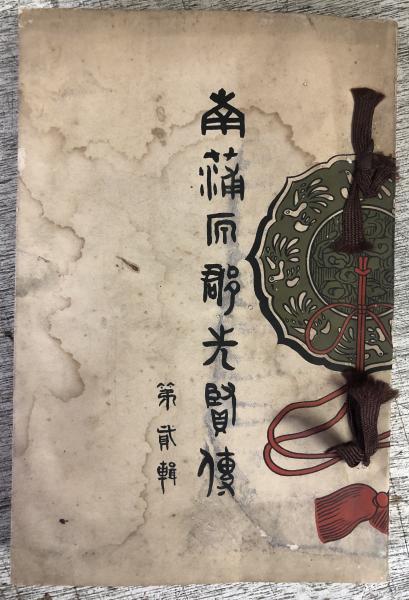 南蒲原郡先賢傳
第貳輯